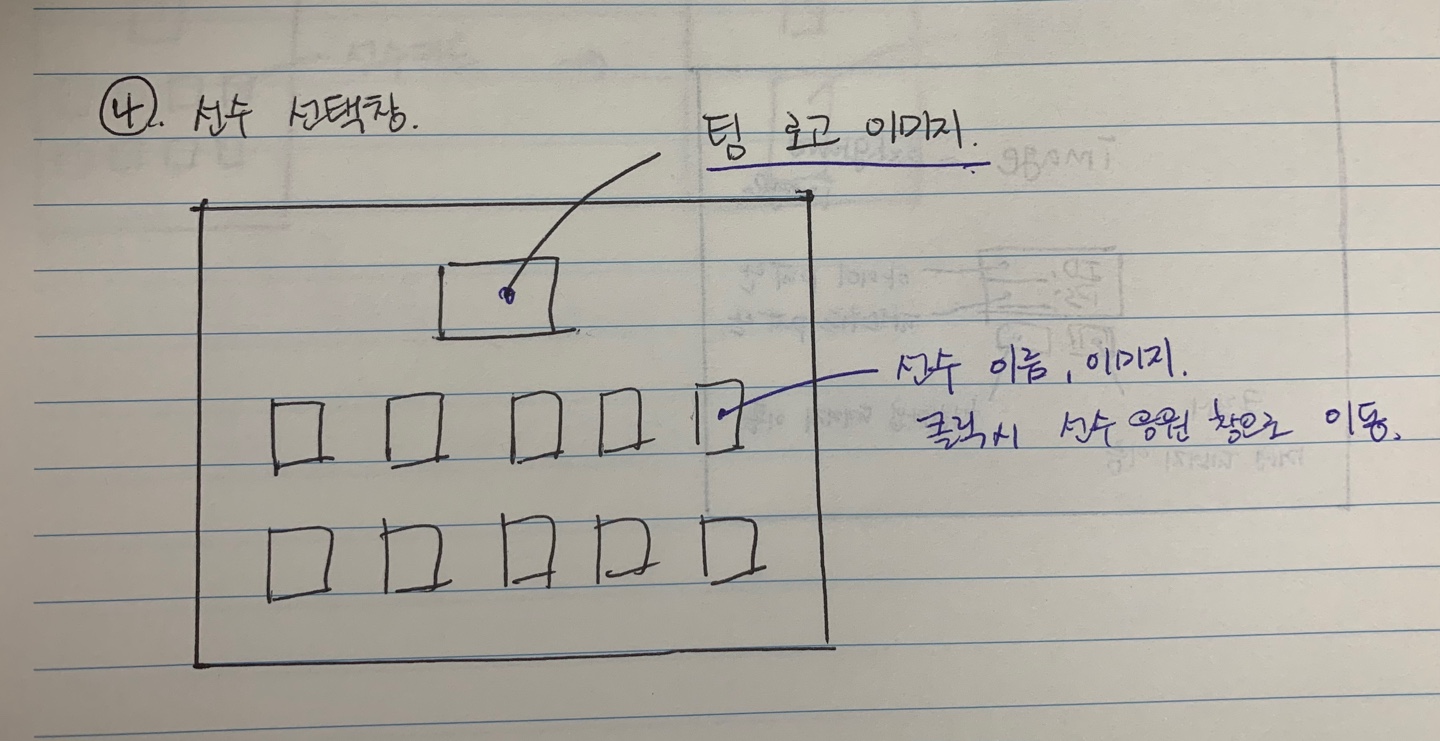 ④. 선수 선택창.
팀 로고 이미지.
선수 이름, 이미지.
클릭시 선수 응원 창으로 이동.